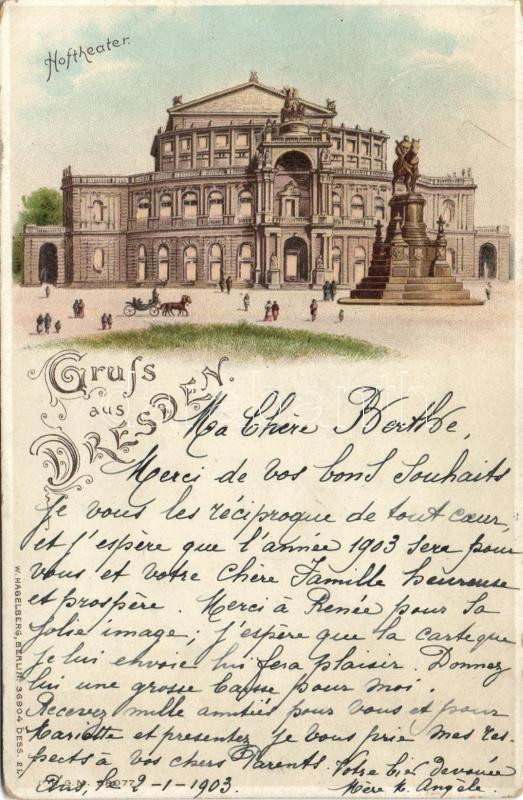 Hoftheater.
Gruss
aus
DRESDEN.
Ma Chère Berthe,
Merci de vos bons souhaits
je vous les réciproque de tout cœur
et j'espère que l'année 1903 sera pour
vous et votre chère Famille heureuse
et prospère. Merci à Renée pour sa
jolie image; j'espère que la carte que
je lui envoie lui fera plaisir. Donnez
lui une grosse baise pour moi.
Recevez mille amitiés pour vous et pour
Mariette et presentez je vous prie mes res
pects à vos chers Parents. Votre bien devouée
2-1-1903. Mère M. Angèle.
W. HAGELBERG, BERLIN. 36904 DESS. 21.